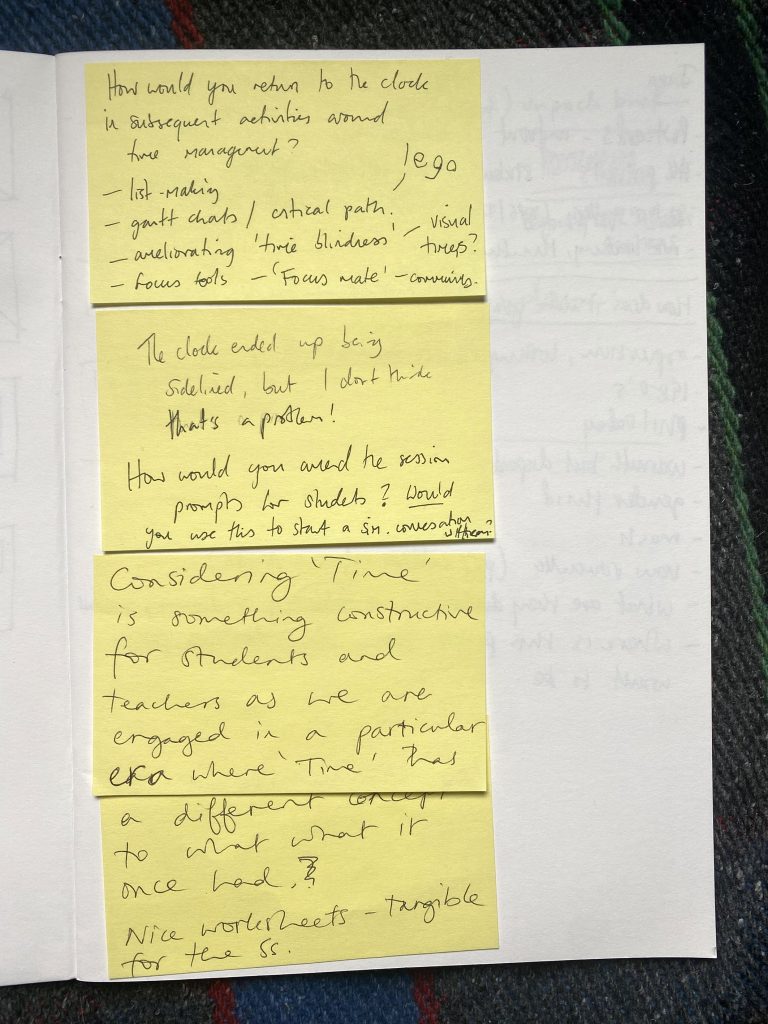 How would you return to the clock
in subsequent activities around
time management?
- list-making
lego
- gantt charts / critical path.
- ameliorating 'time blindness' - visual
timers?
- Focus tools - 'Focus mate' -
The clock ended up being
sidelined, but I don't think
that's a problem!
How would you amend the session
prompts for students? Would
you use this to start a conversation
Considering 'Time'
is something constructive
for students and
teachers as we are
engaged in a particular
era where 'Time' has
a different concept
to what what it
once had.
Nice worksheets - tangible
for the SS.